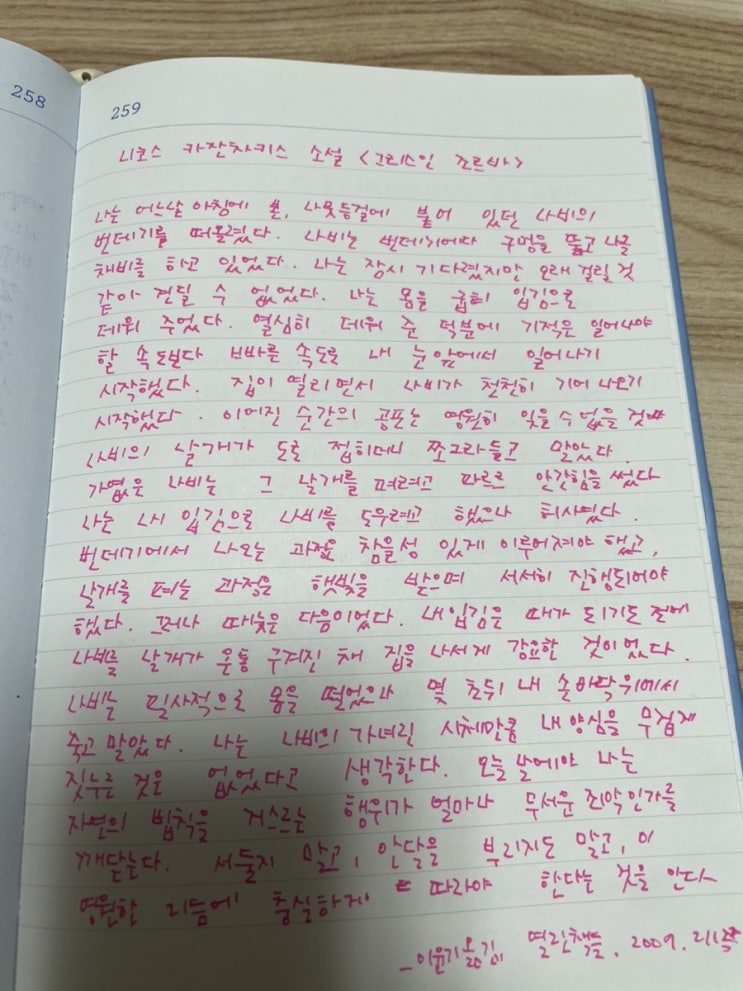 258
259
니코스 카잔차키스 소설 <그리스인 조르바>
나는 어느날 아침에 본, 나뭇등걸에 붙어 있던 나비의
번데기를 떠올렸다. 나비는 번데기에다 구멍을 뚫고 나올
채비를 하고 있었다. 나는 잠시 기다렸지만 오래 걸릴 것
같아 견딜 수 없었다. 나는 몸을 굽혀 입김으로
데워 주었다. 열심히 데워 준 덕분에 기적은 일어나야
할 속도보다 빠른 속도로 내 눈 앞에서 일어나기
시작했다. 집이 열리면서 나비가 천천히 기어 나오기
시작했다. 이어진 순간의 공포는 영원히 잊을 수 없을 것이다
나비의 날개가 도로 접히더니 쪼그라들고 말았다.
가엾은 나비는 그 날개를 펴려고 파르르 안간힘을 썼다
나는 내 입김으로 나비를 도우려고 했으나 허사였다.
번데기에서 나오는 과정은 참을성 있게 이루어져야 했고,
날개를 펴는 과정은 햇빛을 받으며 서서히 진행되어야
했다. 그러나 때늦은 다음이었다. 내 입김은 때가 되기도 전에
나비를 날개가 온통 구겨진 채 집을 나서게 강요한 것이었다.
나비는 필사적으로 몸을 떨었으나 몇 초 뒤 내 손바닥 위에서
죽고 말았다. 나는 나비의 가녀린 시체만큼 내 양심을 무겁게
짓누른 것은 없었다고 생각한다. 오늘날에야 나는
자연의 법칙을 거스르는 행위가 얼마나 무서운 죄악인가를
깨닫는다. 서둘지 말고, 안달을 부리지도 말고, 이
영원한 리듬에 충실하게 따라야 한다는 것을 안다
- 이윤기 옮김 열린책들, 2009. 211쪽